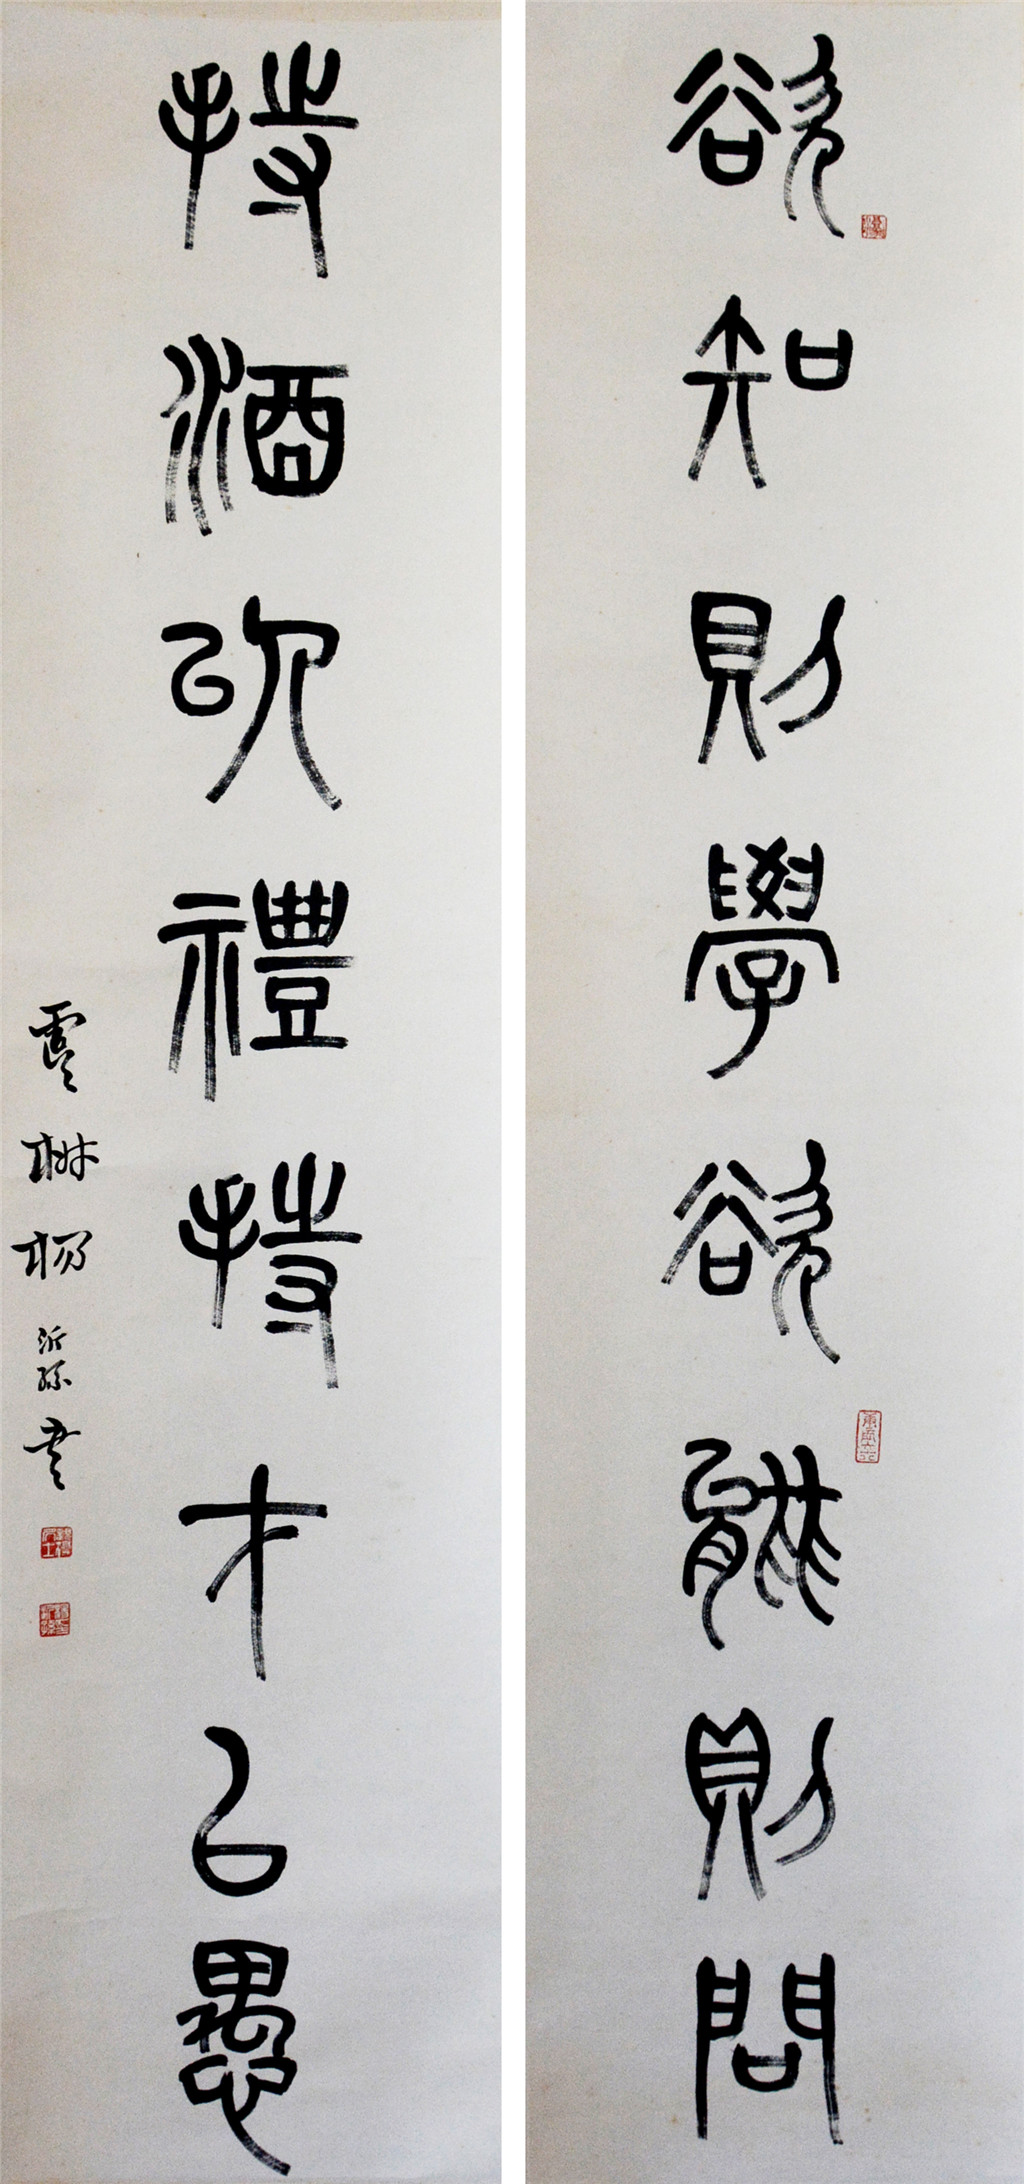 欲知則學欲能則問
持酒以禮持才以愚
霞樵楊沂孫書